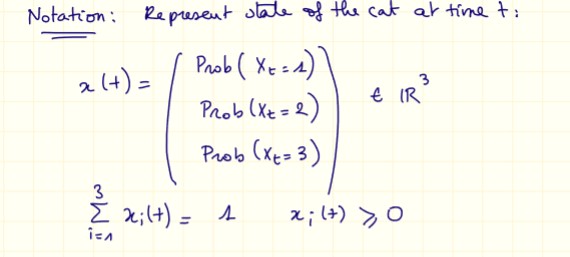 Notation: Represent state of the cat at time t:
x(t) = ( Prob( Xt = 1)
Prob (Xt = 2)
Prob (Xt = 3) ) ∈ ℝ³
3
∑ xi(t) = 1    xi(t) ⩾ 0
i=1